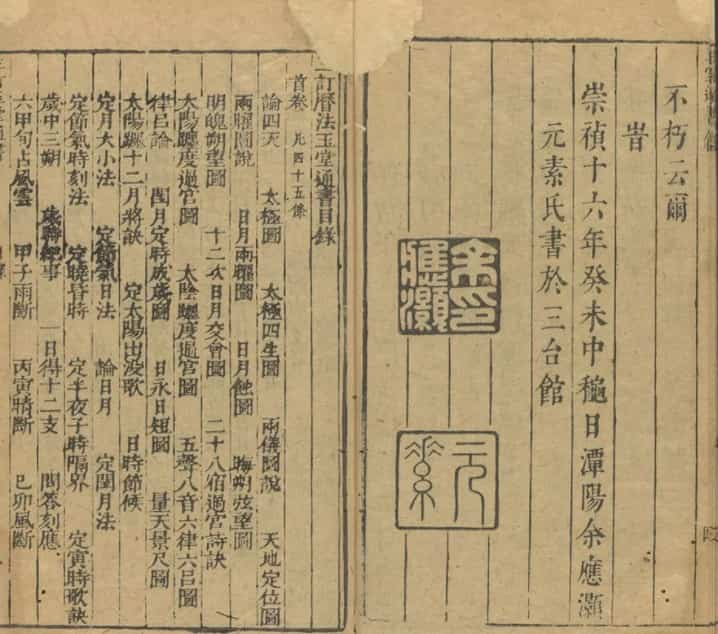 不朽云爾
旹
崇禎十六年癸未中穐日潭陽余應灝
元素氏書於三台館
余印應灝
元素
訂曆法玉堂通書目錄
首卷 凡四十五條
論四天 太極圖 太極四生圖 兩儀圖說 天地定位圖
兩曜圖說 日月兩曜圖 日月蝕圖 晦朔弦望圖
明魄朔望圖 十二次日月交會圖 二十八宿過宮詩訣
太陽躔度過宮圖 太陰躔度過宮圖 五聲八音六律六呂圖
律呂論 閏月定時成歲圖 日永日短圖 量天景尺圖
太陽躔十二月將訣 定太陽出沒歌 日時節候
定月大小法 定節氣日法 論日月 定閏月法
定節氣時刻法 定曉昏時 定半夜子時隔界 定寅時歌訣
歲中三朔 紀事 一日得十二支 問答刻應
六甲旬占風雲 甲子雨斷 丙寅晴斷 己卯風斷